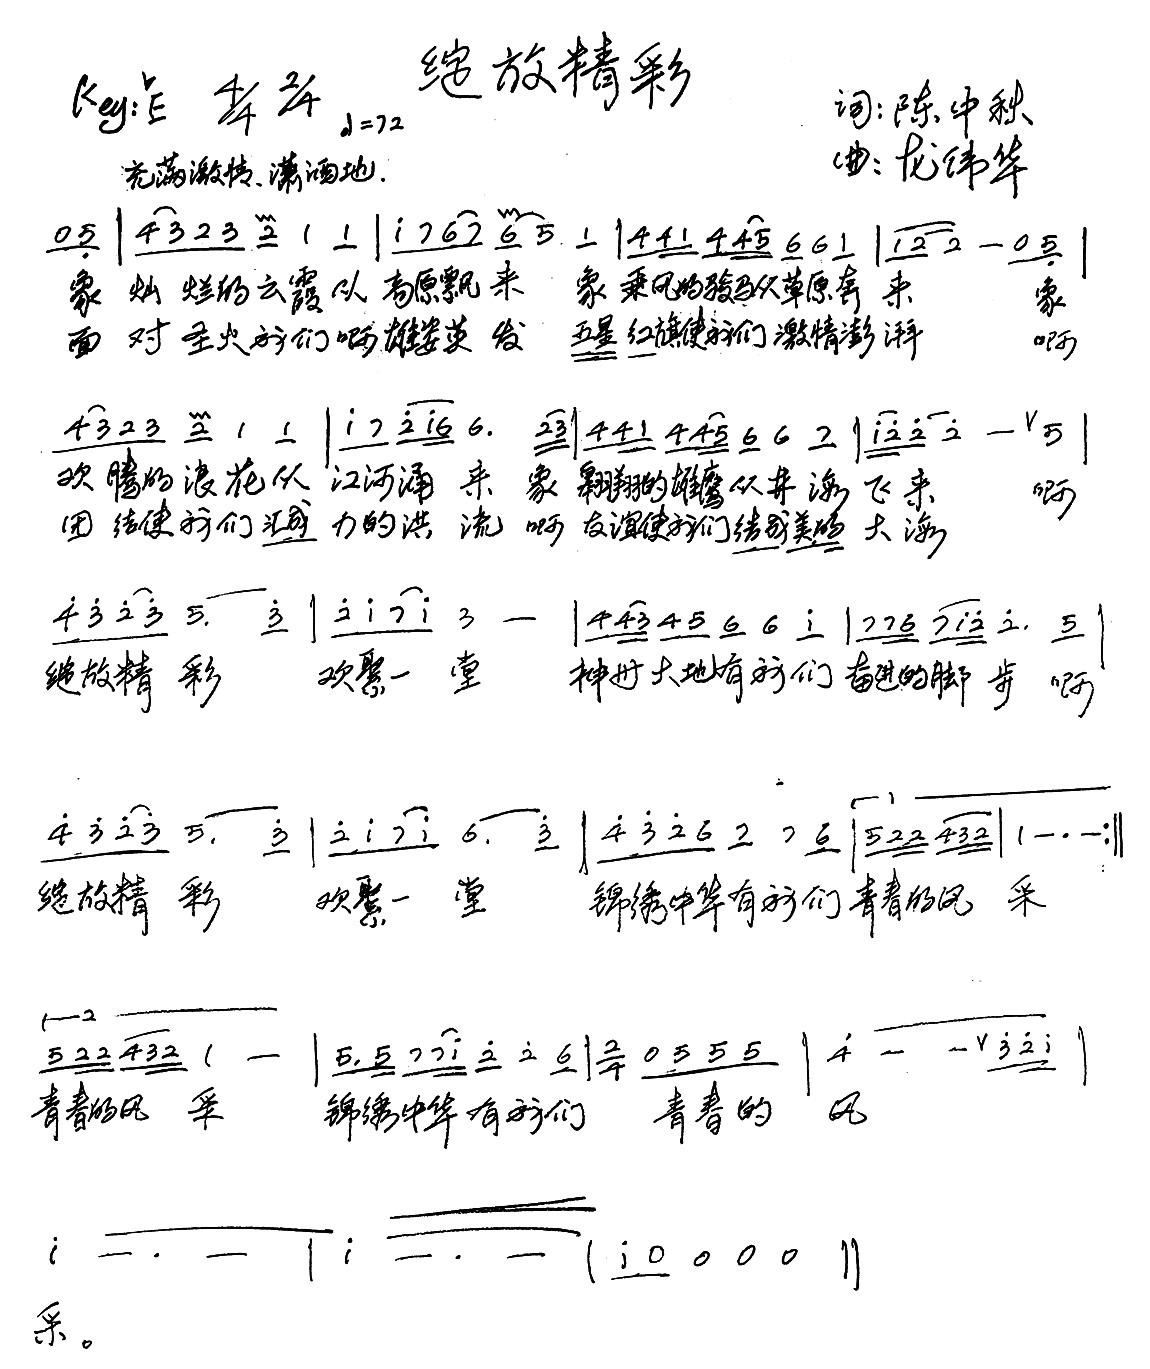 绽放精彩
Key:♭E 4/4 2/4 ♩=72
词:陈中秋
曲:龙纬华
充满激情、潇洒地.
0 5 | 4 3 2 3 2 1 1 | i 7 6 7 6 5. 1 | 4 4 1 4 4 5 6 6 1 | i 2 2 — 0 5 |
象 灿烂的云霞从高原飘来 象乘风的骏马从草原奔来 象
面对圣火我们啊雄姿英发 五星红旗使我们激情澎湃 啊
4 3 2 3 2 1 1 | i 7 2 i 6 6. 2 3 | 4 4 1 4 4 5 6 6 2 | i 2 2 2 — V 5 |
欢腾的浪花从江河涌来 象翱翔的雄鹰从林海飞来 啊
团结使我们汇成力的洪流 啊友谊使我们结成美的大海
4 3 2 3 5. 3 | 2 i 7 i 3 — | 4 4 3 4 5 6 6 i | 7 7 6 7 i 2 2. 5 |
绽放精彩 欢聚一堂 神州大地有我们奋进的脚步 啊
4 3 2 3 5. 3 | 2 i 7 i 6. 3 | 4 3 2 6 2 7 6 | 1 5 2 2 4 3 2 | 1 — · — :‖
绽放精彩 欢聚一堂 锦绣中华有我们青春的风采
2 5 2 2 4 3 2 1 — | 5. 5 7 7 i 2 2 6 | 2/4 0 5 5 5 | 4 — — V 3 2 i |
青春的风采 锦绣中华有我们 青春的风
i — · — | i — · — | i 0 0 0 0 ‖
采。